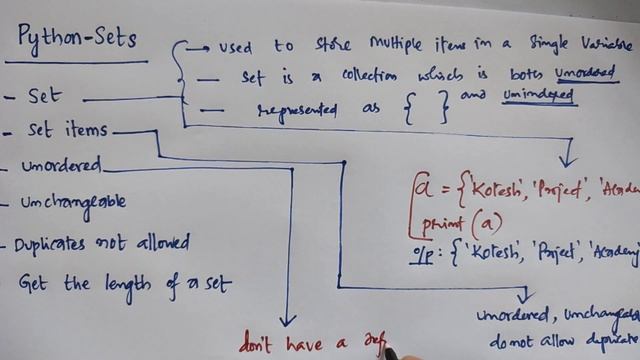 Python-Sets
→ used to store multiple items in a single variable
— set is a collection which is both unordered
and unindexed
— represented as { }
- Set
- Set items
- unordered
- unchangeable
- Duplicates not allowed
- Get the length of a set
a = {'Kotesh', 'Project', 'Academ
print (a)
o/p : {'Kotesh', 'Project', 'Academy
unordered, unchangeable
do not allow duplicate
don't have a